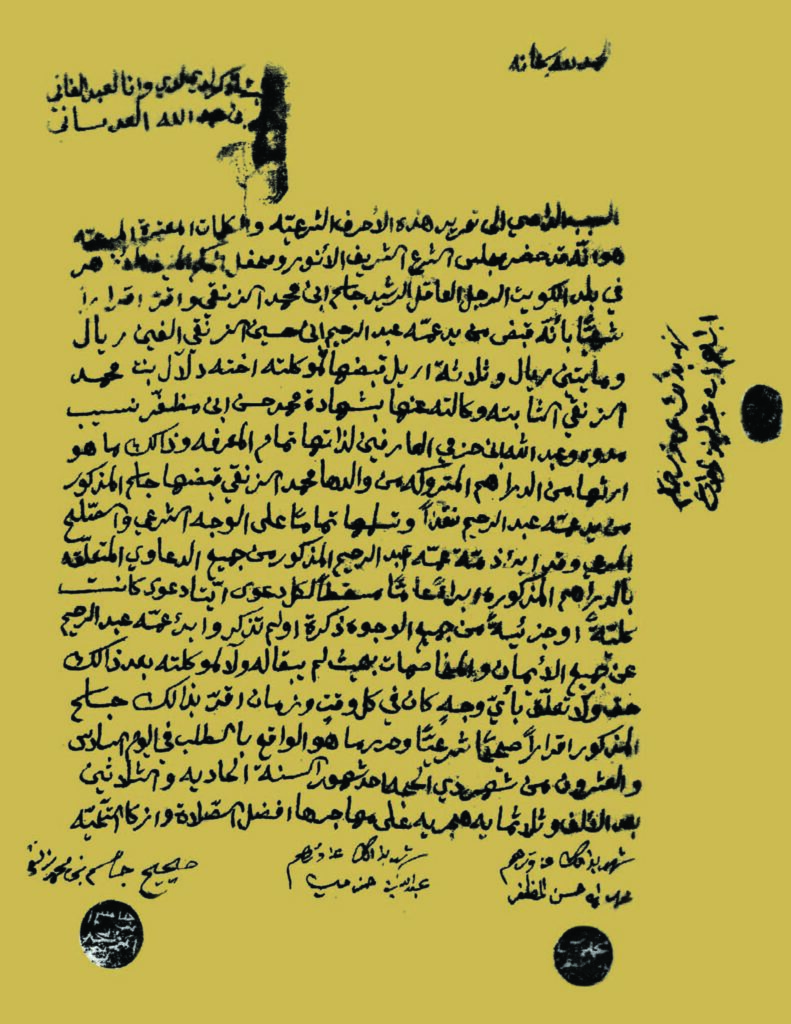 الحمد لله سبحانه
وانا العبد الفاني
بن عبد الله العدساني
السبب الداعي الى تحرير هذه الأحرف الشرعيه والكلمات المعتبرة المرعيه
هو انّه قد حضر مجلس الشرع الشريف الأنور ومحفل
في بلد الكويت الرجل العاقل الرشيد جاسم ابن محمد الزنقي واقرّ اقراراً
شرعيّاً بانّه قبض من يد عمّه عبد الرحيم ابن حسين الزنقي الفين ريال
ومايتين ريال وثلاثة اريل قبضها لموكلته اخته دلال بنت محمد
الزنقي الثابته وكالته عنها بشهادة محمد حسن ابن مظفّر نسيب
وعبد الله ابن حزمي العارفين لذاتها تمام المعرفه وذالك ما هو
ارثها من الدراهم المتروكه من والدها محمد الزنقي قبضها جاسم المذكور
من يد عمّه عبد الرحيم نقداً وتسلمها تماماً على الوجه الشرعي
المرعي وقد ابرأ ذمّة عمّه عبد الرحيم المذكور من جميع الدعاوي المتعلّقه
بالدراهم المذكوره ابراءً عامّاً مسقطاً لكل دعوى ايّتا دعوى كانت
كليّةً او جزئيةً من جميع الوجوه ذكرة او لم تذكر وابرء عمّه عبد الرحيم
عن جميع الأيمان والمخاصمات بحيث لم يبقا له ولا لموكلته بعد ذالك
حق ولا تعلّق بأيّ وجهٍ كان في كل وقتٍ وزمان اقرّ بذالك جاسم
المذكور اقراراً صحيحاً شرعيّاً وحرر ما هو الواقع بالطلب في اليوم السادس
والعشرون من شهر ذي الحجه احد شهور السنة الحاديه والثلاثين
بعد الالف وثلاثمايه هجريه على مهاجرها افضل الصلاة وازكا التحيّه
شهد بذالك
محمد ابن حسن المظفر
شهد بذالك
عبدالله بن حزمي
صحيح جاسم بن محمد زنقي